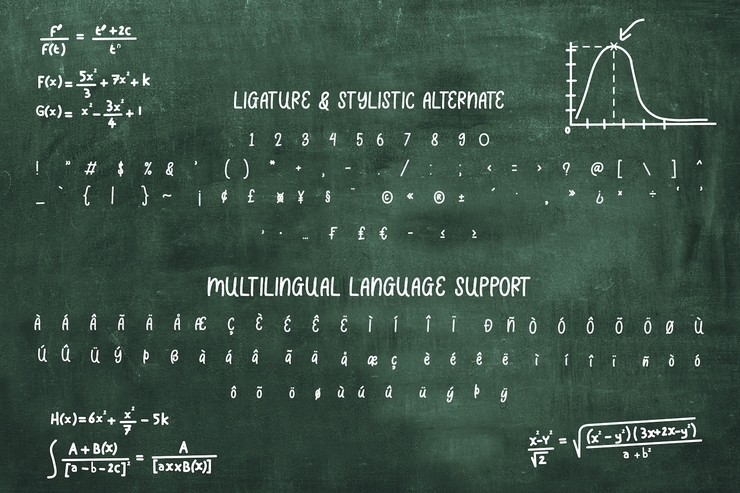 F² / F(t) = t² + 2c / tⁿ
F(x) = 5x² / 3 + 7x² + k
G(x) = x² - 3x² / 4 + 1
0
LIGATURE & STYLISTIC ALTERNATE
1 2 3 4 5 6 7 8 9 0
! " # $ % & ' ( ) * + , - . / : ; < = > ? @ [ \ ] ^
_ ` { | } ~ ¡ ¢ £ ¤ ¥ § ¨ © « ® ± ´ · ¸ » ¿ × ÷ ‘ ’
‚ · … ₣ £ € − ≤ ≥
MULTILINGUAL LANGUAGE SUPPORT
À Á Â Ã Ä Å Æ Ç È É Ê Ë Ì Í Î Ï Ð Ñ Ò Ó Ô Õ Ö Ø Ù
Ú Û Ü Ý Þ ß à á â ã ä å æ ç è é ê ë ì í î ï ñ ò ó
ô õ ö ø ù ú û ü ý þ ÿ
H(x)=6x² + x² / 7 - 5k
∫ A + B(x) / [a - b - 2c]² = A / [a x x B(x)]
x² - Y² / √2 = √(x² - y²)(3x+2x-y²) / a + b²